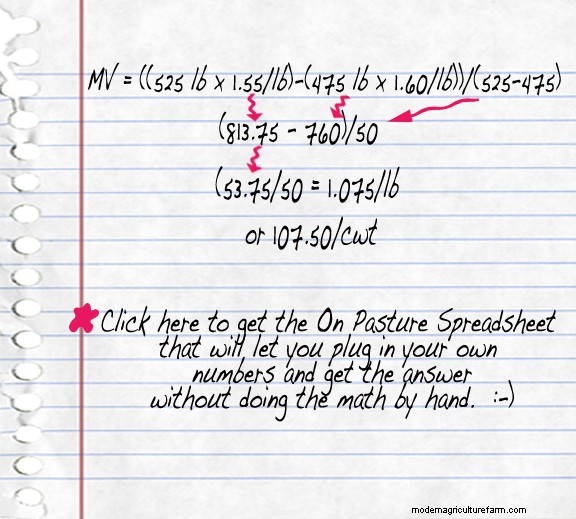 MV = ((525 lb x 1.55/lb)-(475 lb x 1.60/lb))/(525-475)
(813.75 - 760)/50
(53.75/50 = 1.075/lb
or 107.50/cwt
* Click here to get the On Pasture Spreadsheet
that will let you plug in your own
numbers and get the answer
without doing the math by hand. :-)
modernagriculturefarm.com